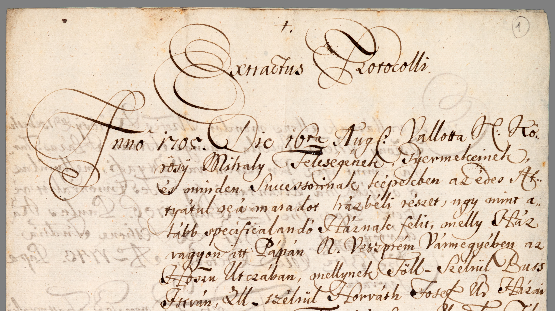 1.
1
Extractus Protocolli
Anno 1705. Die 16ta Aug. Vallotta N. Kö-
rösy Mihaly Feleségenek, Gyermekeinek,
és minden Successorinak képekben az édes At-
tyátul reá maradot házbéli részét, ugy mint a-
lább specificalandó Háznak felit, melly Ház
vagyon itt Pápán N. Veszprem Vármegyében az
Hoszu Utczában, mellynek Föll-Szélrül Bass
István, All-szélrül Horváth Josef Ur Házai